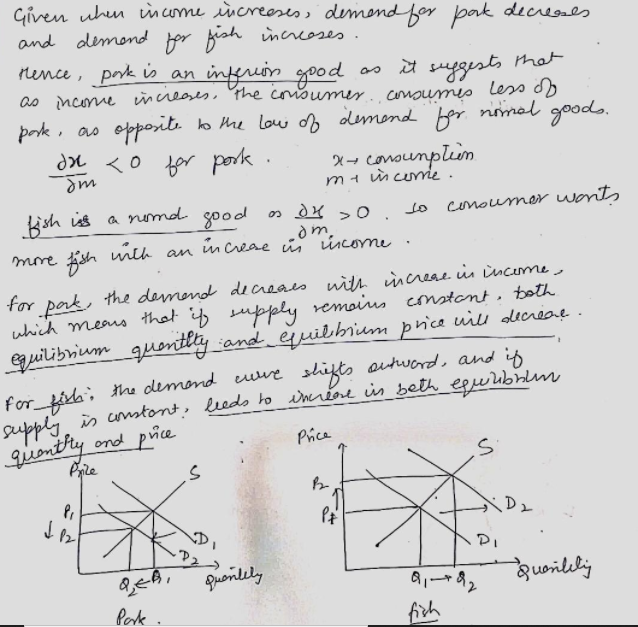 Given when income increases, demand for pork decreases
and demand for fish increases.
Hence, pork is an inferior good as it suggests that
as income increases, the consumer consumes less of
pork, as opposite to the law of demand for normal goods.
∂x/∂m < 0 for pork. x → consumption
m → income.
fish is a normal good as ∂x/∂m > 0. so consumer wants
more fish with an increase in income.
for pork, the demand decreases with increase in income,
which means that if supply remains constant, both
equilibrium quantity and equilibrium price will decrease.
For fish, the demand curve shifts outward, and if
supply is constant, leads to increase in both equilibrium
quantity and price
Price
S
P1
↓ P2
D1
D2
Q2 ← Q1
Quantity
Pork.
Price
S
P2
↑
P1
D2
D1
Q1 → Q2
Quantity
fish